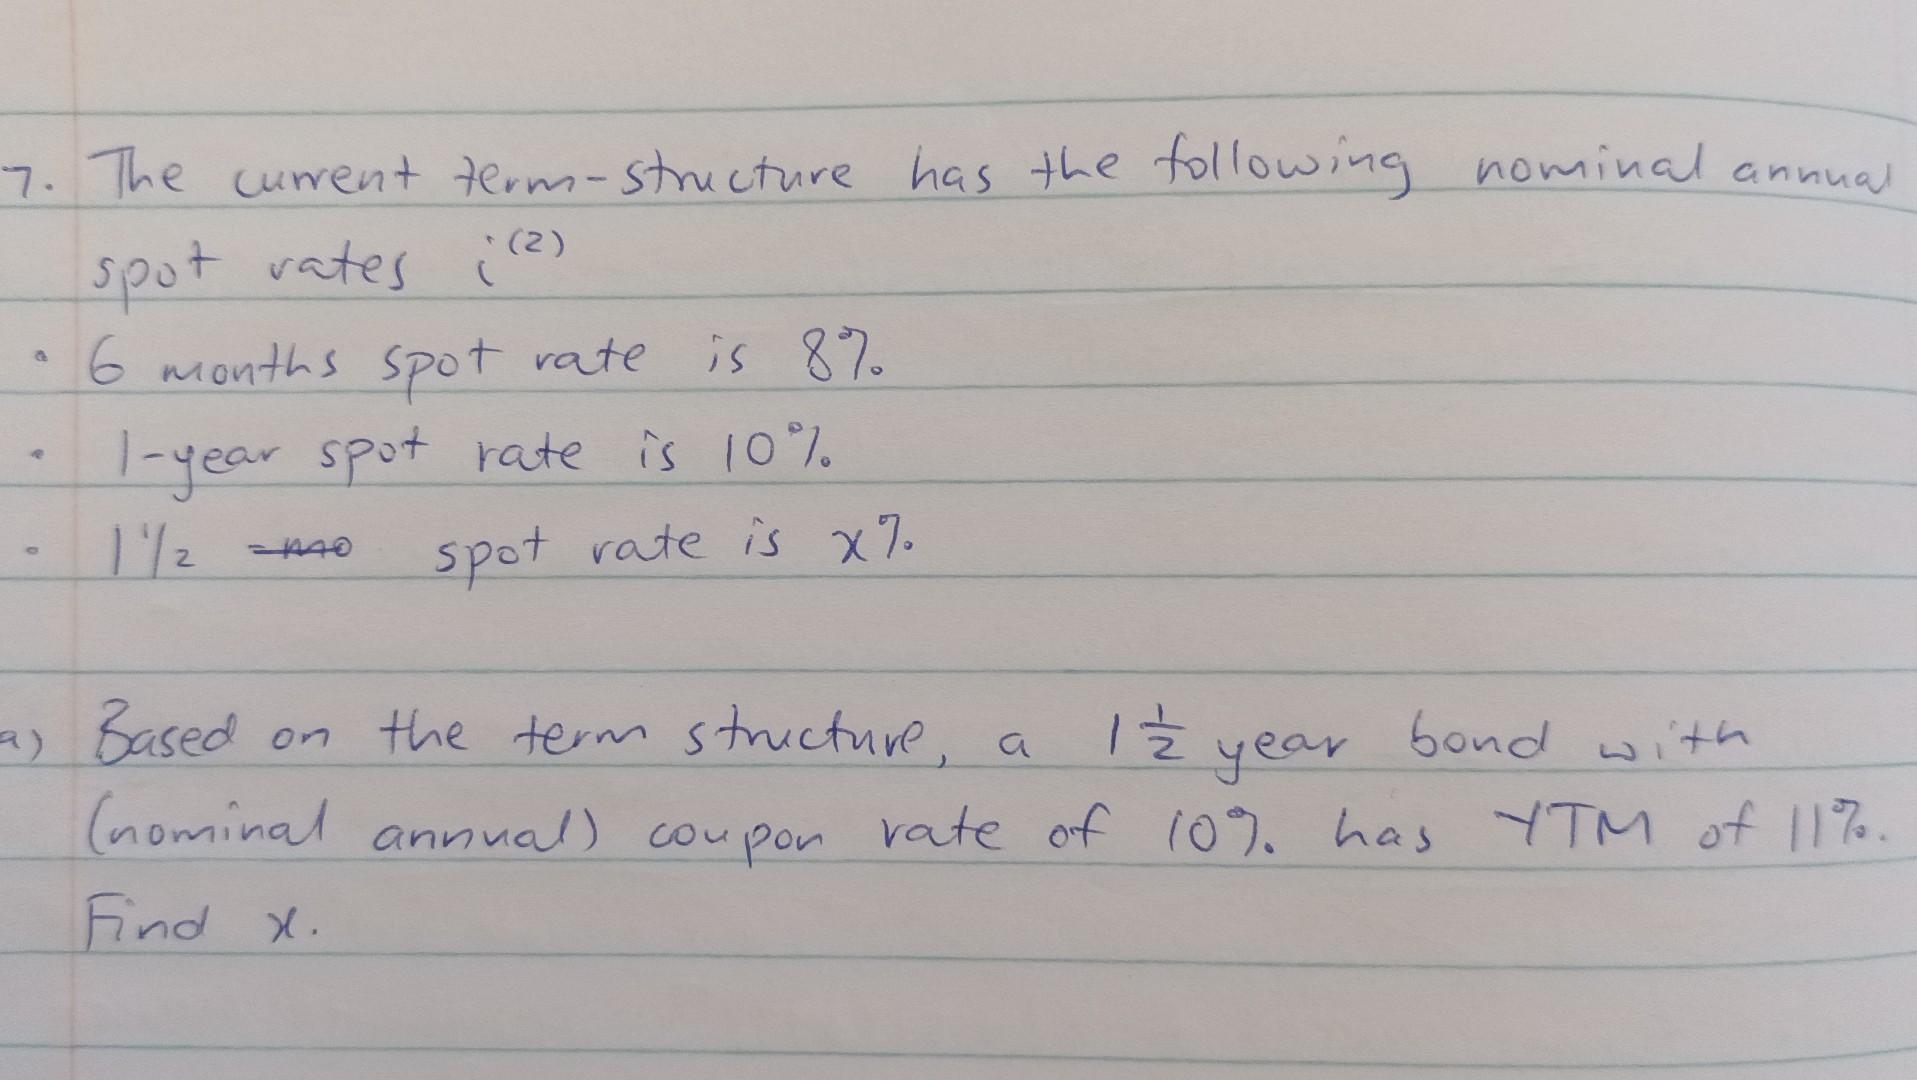 7. The current term-structure has the following nominal annual
spot rates i⁽²⁾
• 6 months spot rate is 8%
• 1-year spot rate is 10%
• 1 1/2 spot rate is x%
a) Based on the term structure, a 1 1/2 year bond with
(nominal annual) coupon rate of 10% has YTM of 11%.
Find x.